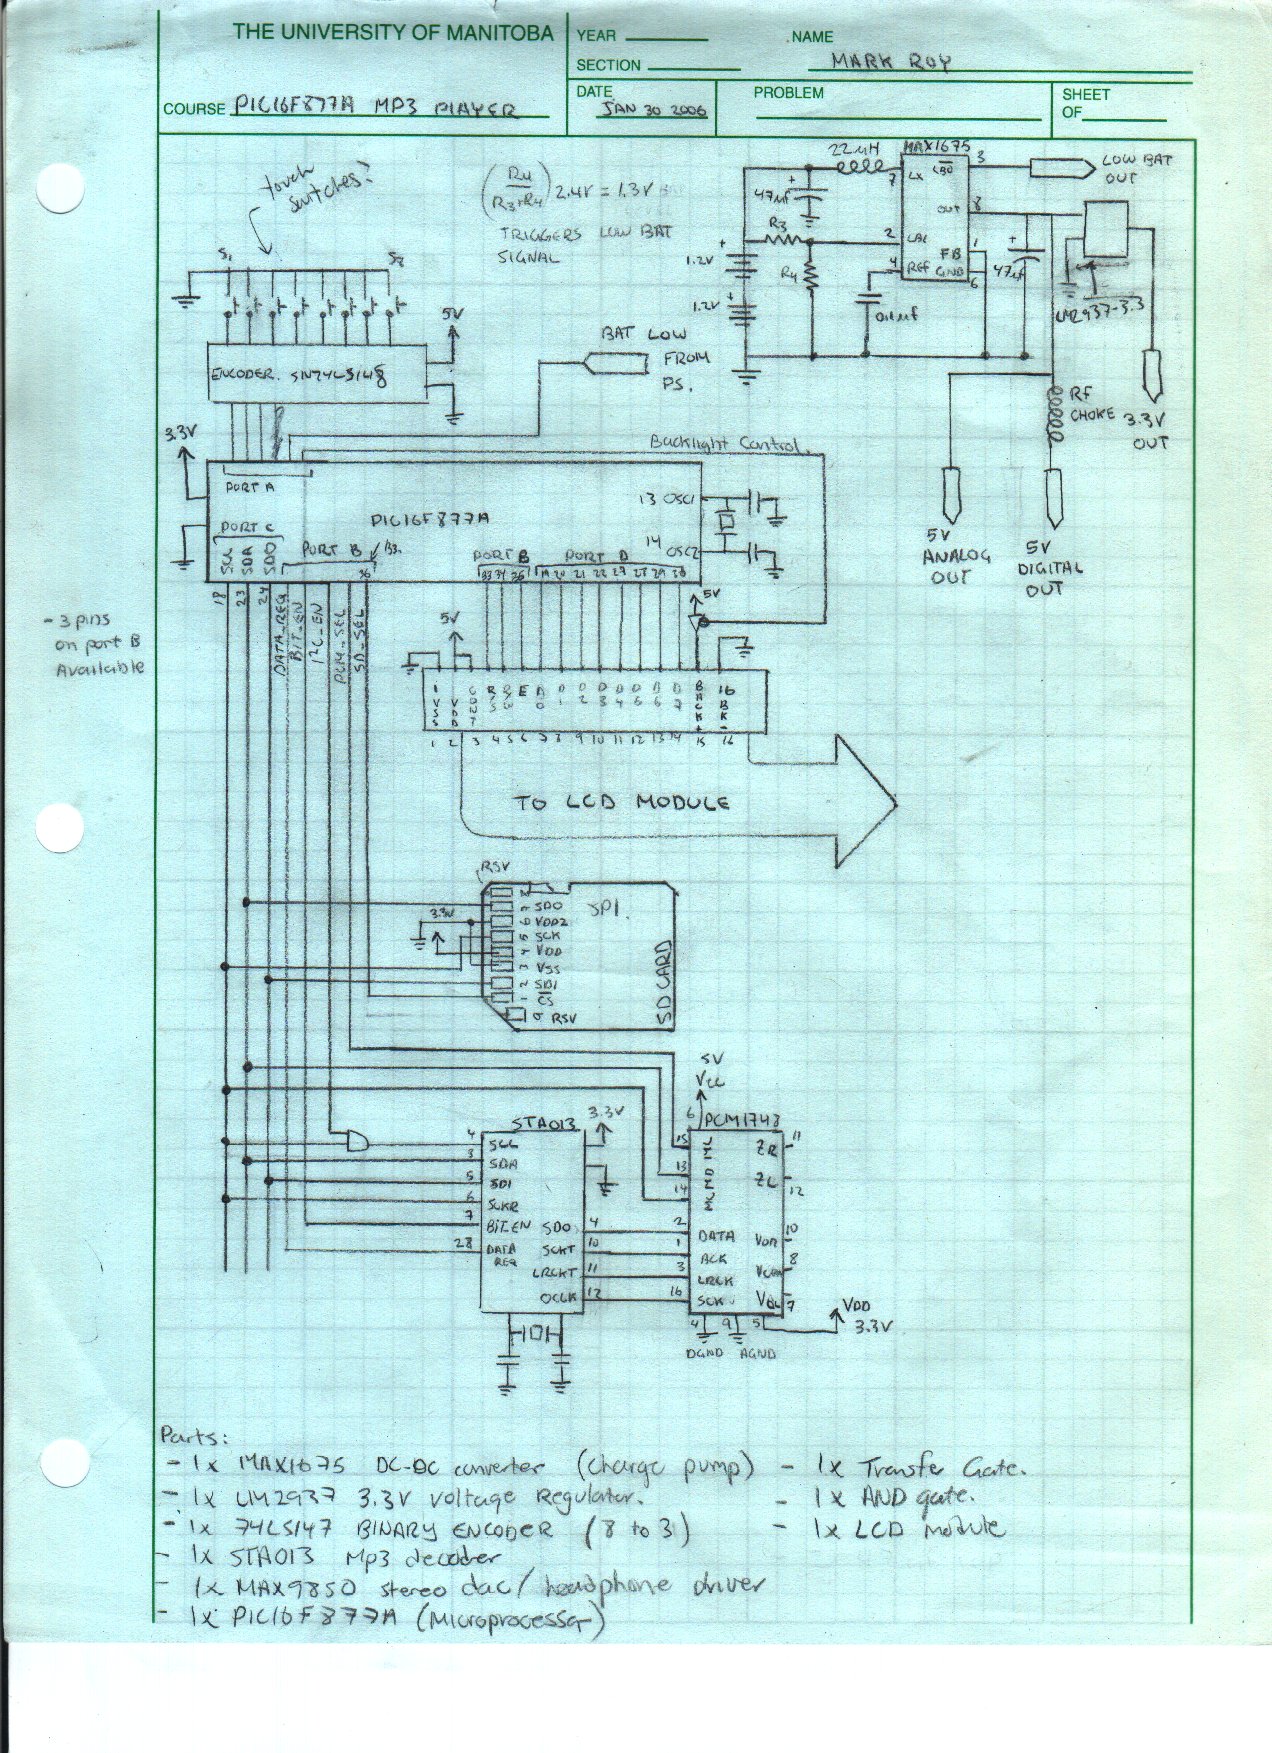 THE UNIVERSITY OF MANITOBA
YEAR
.NAME
SECTION
MARK ROY
COURSE PIC16F877A MP3 PLAYER
DATE JAN 30 2006
PROBLEM
SHEET
OF
touch
switches?
S1
S8
(R4 / R3+R4) 2.4V = 1.3V
TRIGGERS LOW BAT
SIGNAL
22uH
MAX1675
47uF
R3
R4
1.2V
1.2V
7 LX
LBO 3
OUT 8
2 LBI
4 REF
FB 1
GND 6
0.1uF
47uF
LM2937-3.3
LOW BAT
OUT
RF
CHOKE
3.3V
OUT
5V
ANALOG
OUT
5V
DIGITAL
OUT
ENCODER. SN74LS148
5V
BAT LOW
FROM
PS.
Backlight Control.
3.3V
PORT A
PIC16F877A
13 OSC1
14 OSC2
PORT C
SCL
SDA
SDO
PORT B
B3.
36
PORT B
PORT D
33 34 35 19 20 21 22 27 28 29 30
18
23
24
DATA_REQ
BIT_EN
I2C_EN
PCM_SEL
SD_SEL
- 3 pins
on port B
Available
5V
5V
1 VSS
VDD
CONT
RS
RW
E
D0
D1
D2
D3
D4
D5
D6
D7
BACK+
16 BK-
1 2 3 4 5 6 7 8 9 10 11 12 13 14 15 16
TO LCD MODULE
RSV
8
7 SDO
6 VDD2
5 SCK
4 VDD
3 VSS
2 SDI
1 CS
σ RSV
3.3V
SPI.
SD CARD
5V
VCC
6
PCM1748
STA013
3.3V
4 SCL
3 SDA
5 SDI
6 SCKR
7 BIT_EN
28 DATA
REQ
SDO 4
SCKT 10
LRCKT 11
OCLK 12
15 ML
13 MD
14 MC
2 DATA
1 BCK
3 LRCK
16 SCK
ZR 11
ZL 12
VOR 10
VCOM 8
VOL 7
4
9
5
DGND AGND
VDD
3.3V
Parts:
- 1x MAX1675 DC-DC converter (charge pump)
- 1x LM2937 3.3V Voltage Regulator.
- 1x 74LS147 BINARY ENCODER (8 to 3)
- 1x STA013 Mp3 decoder
- 1x MAX9850 stereo dac/headphone driver
- 1x PIC16F877A (Microprocessor)
- 1x Transfer Gate.
- 1x AND gate.
- 1x LCD module